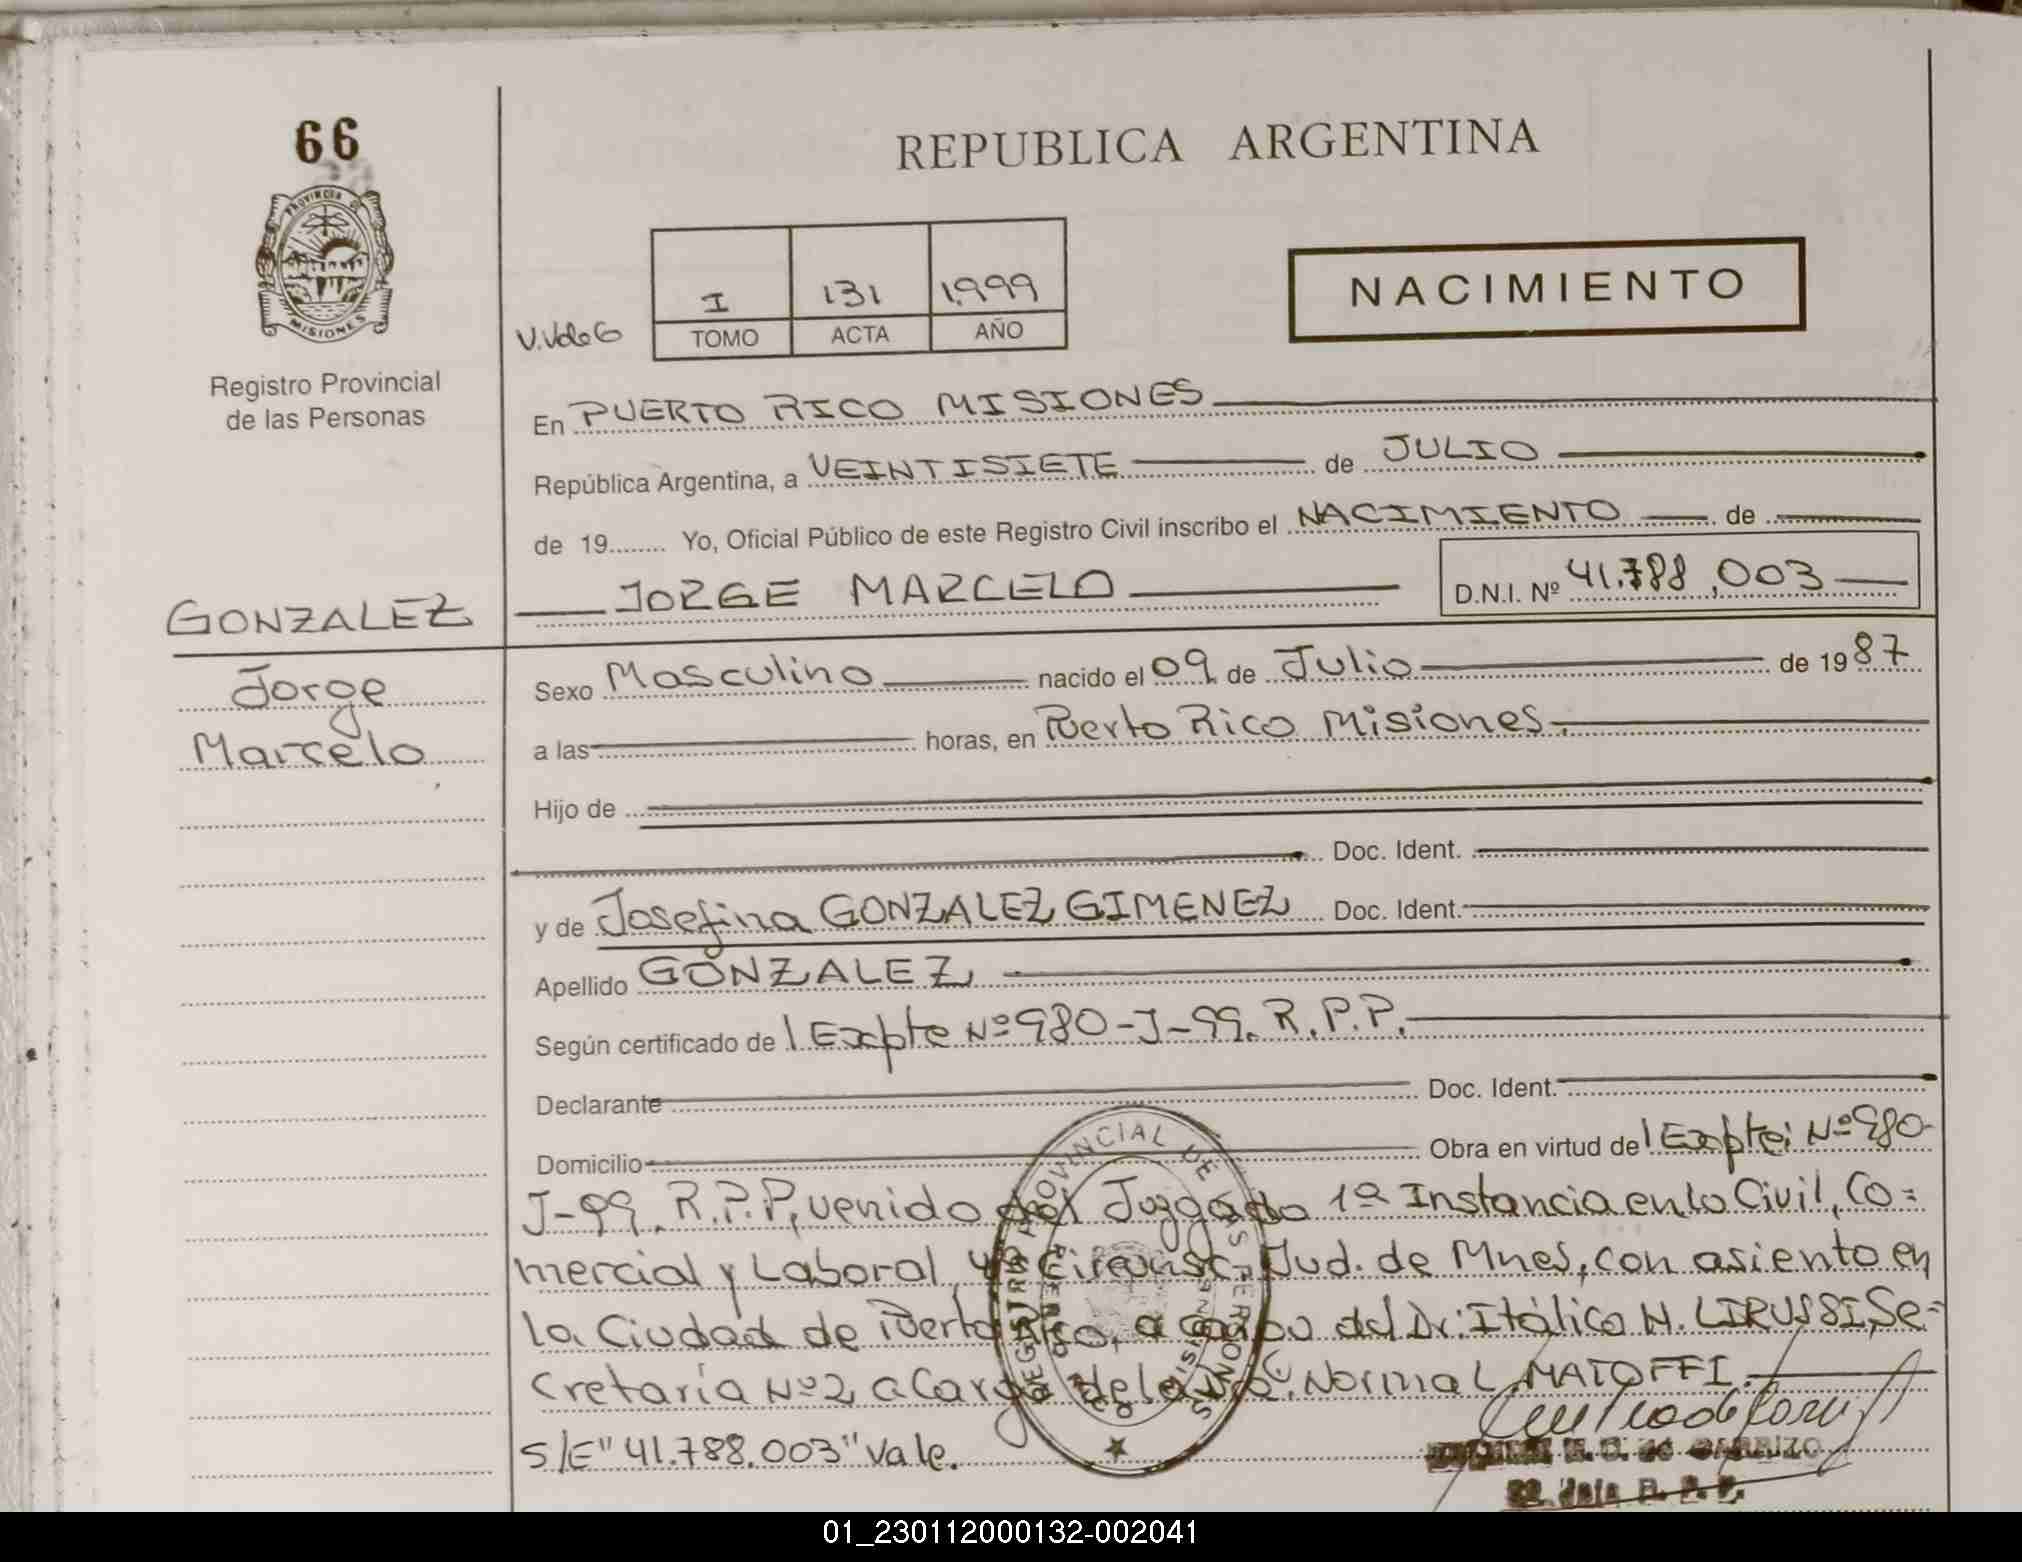 66
REPUBLICA ARGENTINA
PROVINCIA DE MISIONES
Registro Provincial
de las Personas
V.Vdo6
I 131 1.999
TOMO ACTA AÑO
NACIMIENTO
En PUERTO RICO MISIONES
República Argentina, a VEINTISIETE de JULIO
de 19........ Yo, Oficial Público de este Registro Civil inscribo el NACIMIENTO de
GONZALEZ JORGE MARCELO D.N.I. Nº 41.788.003
Jorge
Marcelo
Sexo Masculino nacido el 09 de Julio de 1987
a las horas, en Puerto Rico Misiones.
Hijo de
Doc. Ident.
y de Josefina GONZALEZ GIMENEZ Doc. Ident.
Apellido GONZALEZ
Según certificado de Expte Nº 980-J-99. R.P.P.
Declarante Doc. Ident.
Domicilio Obra en virtud del Expte: Nº 980-
J-99. R.P.P, venido del Juzgado 1ª Instancia en lo Civil, Co=
mercial y Laboral, 4ª Circunsc. Jud. de Mnes, con asiento en
la Ciudad de Puerto Rico, a cargo del Dr. Itálico N. LIRUSSI, Se=
cretaría Nº 2, a Cargo de la Norma L. MATOFFI.
S/E "41.788.003" Vale.
REGISTRO PROVINCIAL DE LAS PERSONAS
PUERTO RICO
MISIONES
01_230112000132-002041